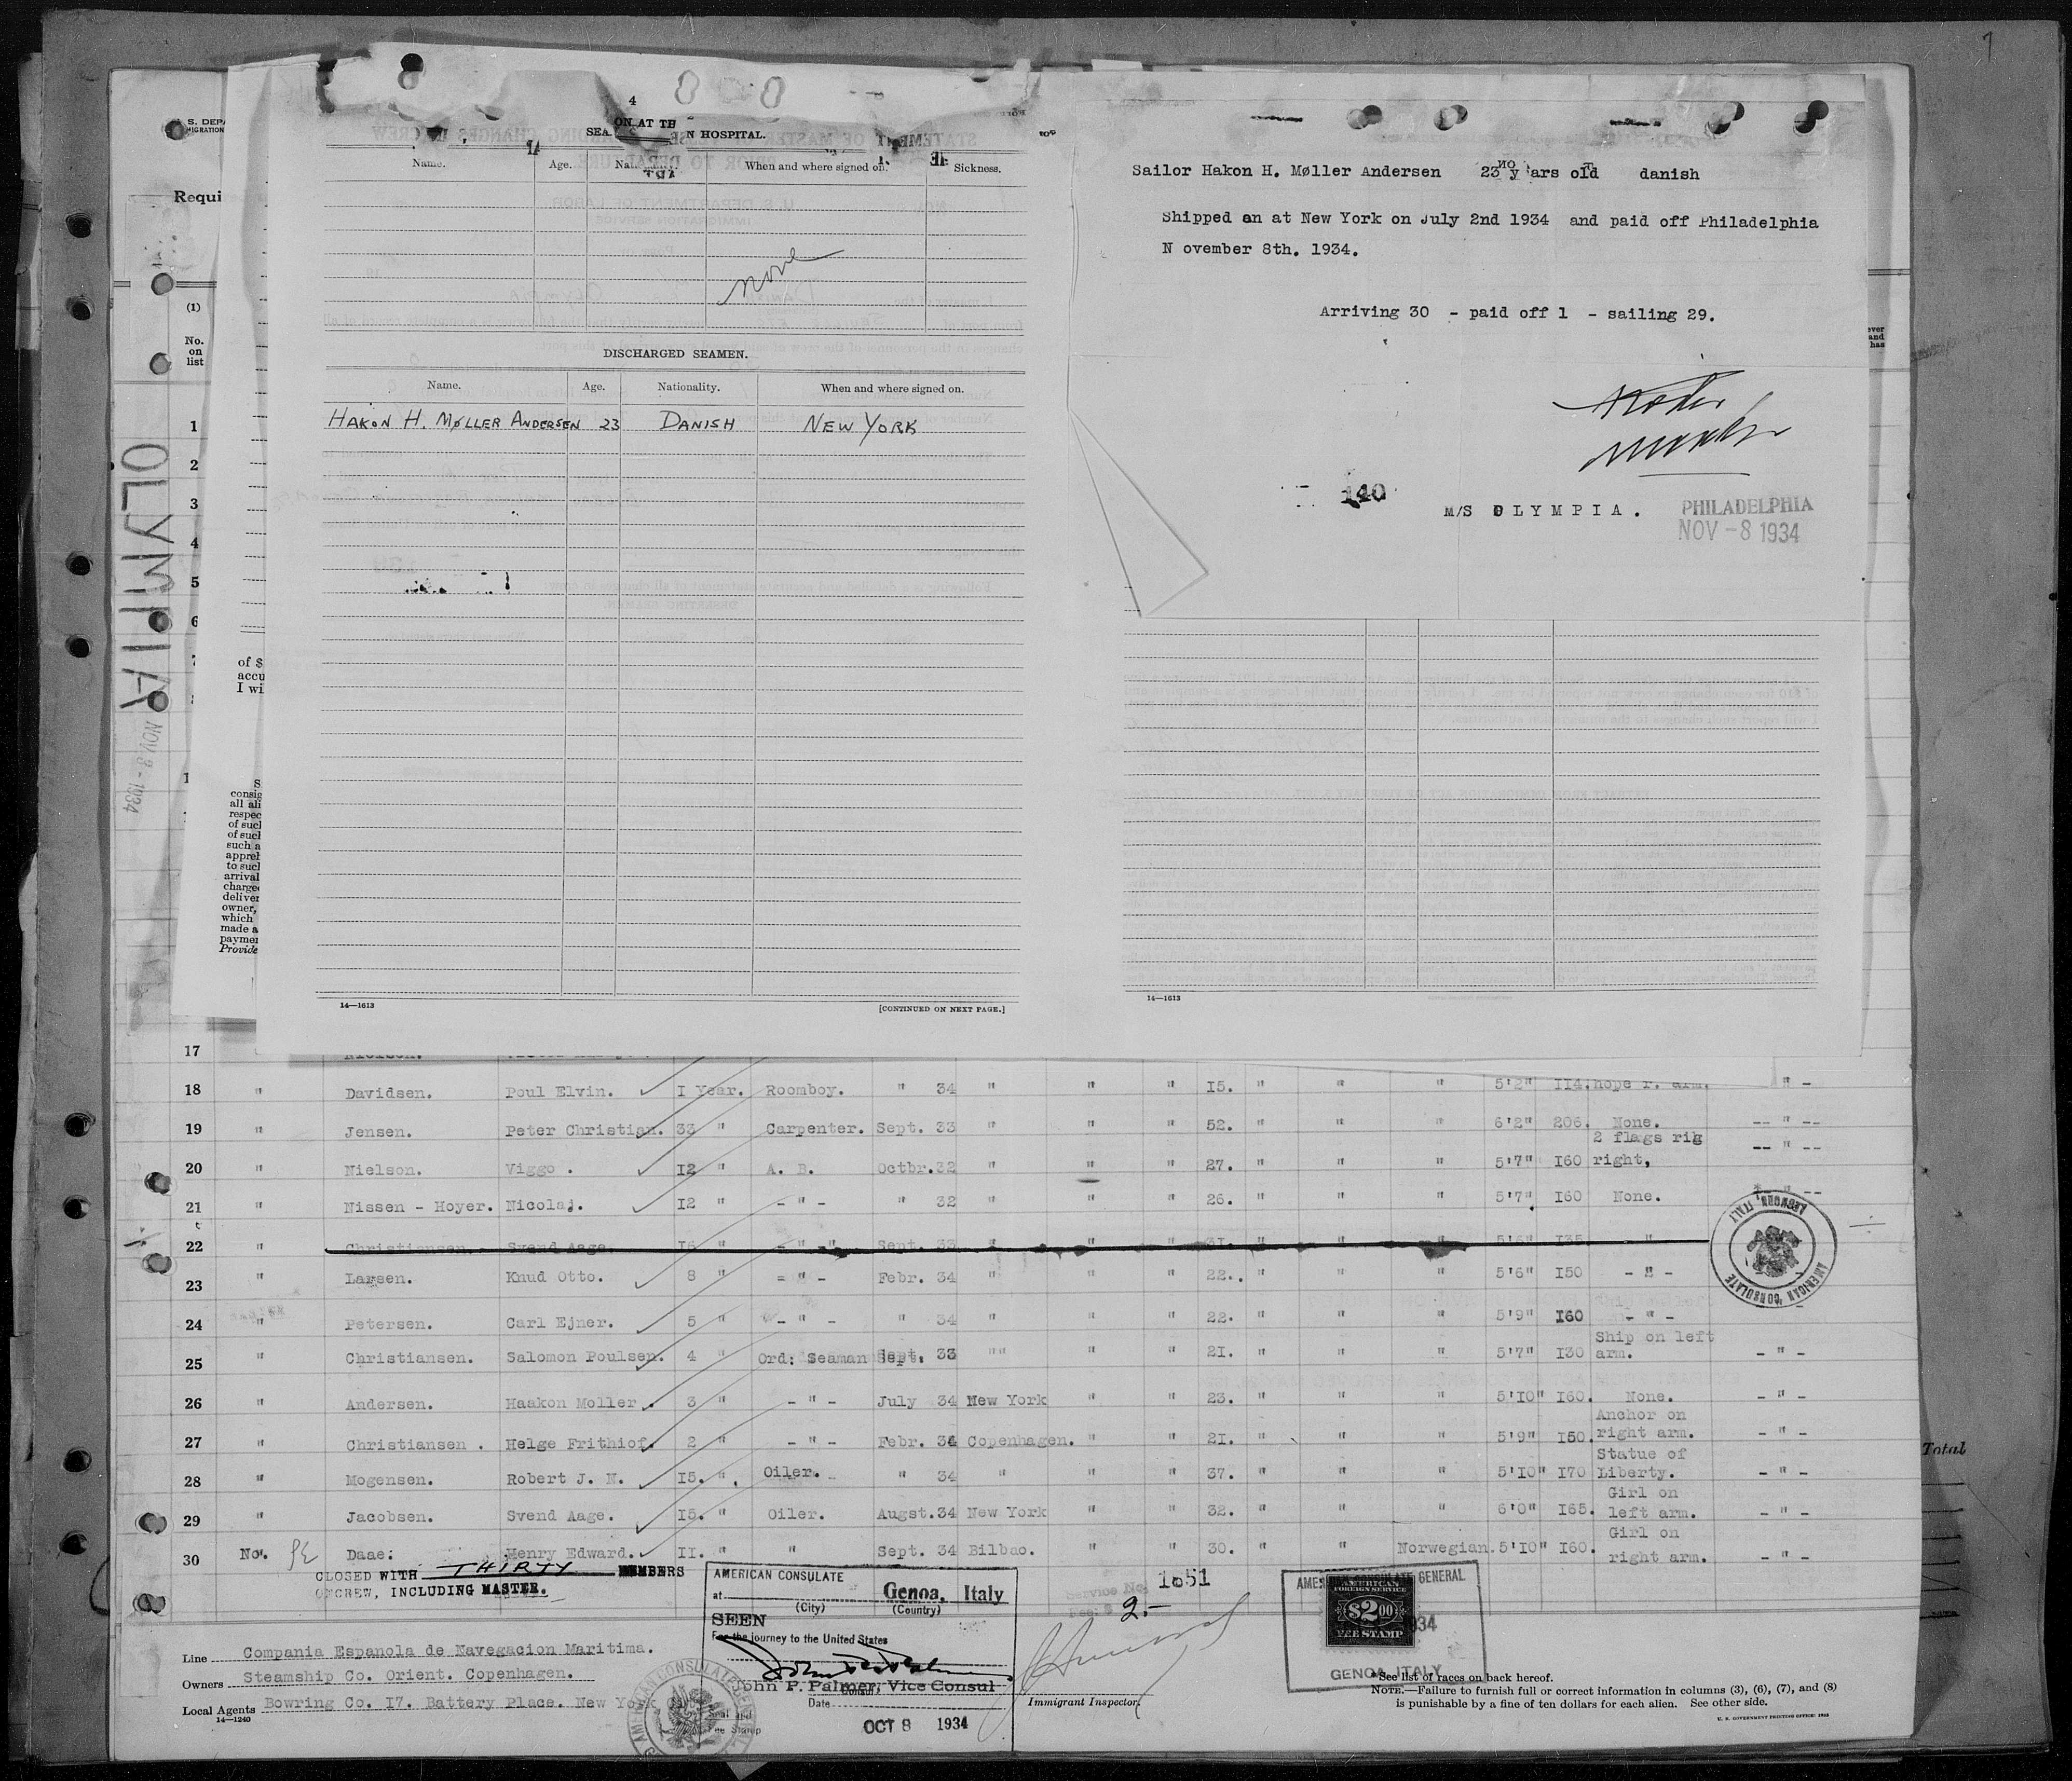 7
S. DEPA
MIGRATION
Requi
(1)
No.
on
list
1
2
3
4
5
6
OLYMPIA
NOV 8 - 1934
of $
accu
I wi
S
consig
all ali
respec
of such
of such
such a
appreh
to such
arrival
charge
deliver
owner,
which
made a
paymen
Provide
4
SEA N HOSPITAL.
Name. Age. When and where signed on. Sickness.
None
DISCHARGED SEAMEN.
Name. Age. Nationality. When and where signed on.
HAKON H. MØLLER ANDERSEN 23 DANISH NEW YORK
14—1613 [CONTINUED ON NEXT PAGE.]
Sailor Hakon H. Møller Andersen 23 years old danish
Shipped on at New York on July 2nd 1934 and paid off Philadelphia
N ovember 8th. 1934.
Arriving 30 - paid off 1 - sailing 29.
Master
140
M/S OLYMPIA.
PHILADELPHIA
NOV -8 1934
14—1613
ever
and
has
17 Nielsen.
18 " Davidsen. Poul Elvin. I Year. Roomboy. " 34 " " " 15. " " " 5'2" 114. hope r. arm. " -
19 " Jensen. Peter Christian. 33 " Carpenter. Sept. 33 " " " 52. " " " 6'2" 206. None. -- " --
20 " Nielson. Viggo . I2 " A. B. Octbr.32 " " " 27. " " " 5'7" I60 2 flags rig right, -- " --
21 " Nissen - Hoyer. Nicolaj. I2 " - " - " 32 " " " 26. " " " 5'7" I60 None. - " --
22 " Christiansen. Svend Aage. I6 " - " - Sept. 33 " " " 31. " " " 5'6" I35 "
23 " Larsen. Knud Otto. 8 " - " - Febr. 34 " " " 22. " " " 5'6" I50 - " -
24 " Petersen. Carl Ejner. 5 " - " - " 34 " " " 22. " " " 5'9" I60 - " -
25 " Christiansen. Salomon Poulsen. 4 " Ord: Seaman Sept. 33 "" " " 21. " " " 5'7" I30 Ship on left arm. - " -
26 " Andersen. Haakon Moller . 3 " - " - July 34 New York " " 23. " " " 5'10" I60. None. - " -
27 " Christiansen . Helge Frithiof. 2 " - " - Febr. 34 Copenhagen. " " 21. " " " 5'9" I50. Anchor on right arm. - " -
28 " Mogensen. Robert J. N. I5. " Oiler. " 34 " " " 37. " " " 5'10" I70 Statue of Liberty. - " -
29 " Jacobsen. Svend Aage. I5. " Oiler. Augst.34 New York " " 32. " " " 6'0" I65. Girl on left arm. - " -
30 No. Daae: Henry Edward. II. " " Sept. 34 Bilbao. " " 30. " " Norwegian. 5'10" I60. Girl on right arm. - " -
CLOSED WITH THIRTY MEMBERS
OF CREW, INCLUDING MASTER.
Total
AMERICAN CONSULATE
LEGHORN, ITALY
Line Compania Espanola de Navegacion Maritima.
Owners Steamship Co. Orient. Copenhagen.
Local Agents Bowring Co. I7. Battery Place. New York
14—1240
AMERICAN CONSULATE
at Genoa, Italy
(City) (Country)
SEEN
For the journey to the United States
John P. Palmer, Vice Consul
Date OCT 8 1934
Service No. 1651
2.-
Immigrant Inspector.
AMERICAN CONSULATE GENERAL
AMERICAN
FOREIGN SERVICE
$2.00
FEE STAMP
GENOA, ITALY
*See list of races on back hereof.
NOTE.—Failure to furnish full or correct information in columns (3), (6), (7), and (8)
is punishable by a fine of ten dollars for each alien. See other side.
U. S. GOVERNMENT PRINTING OFFICE: